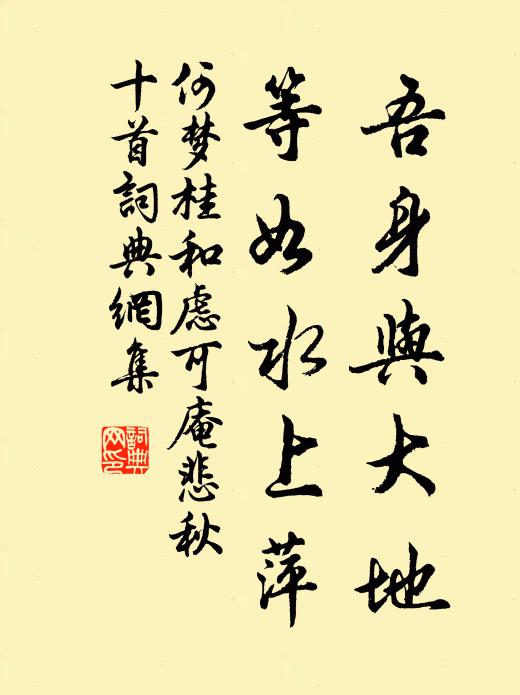 吾身與大地
等如水上萍
何梦桂和慮可庵悲秋
十首詞典網集
詞典
网印